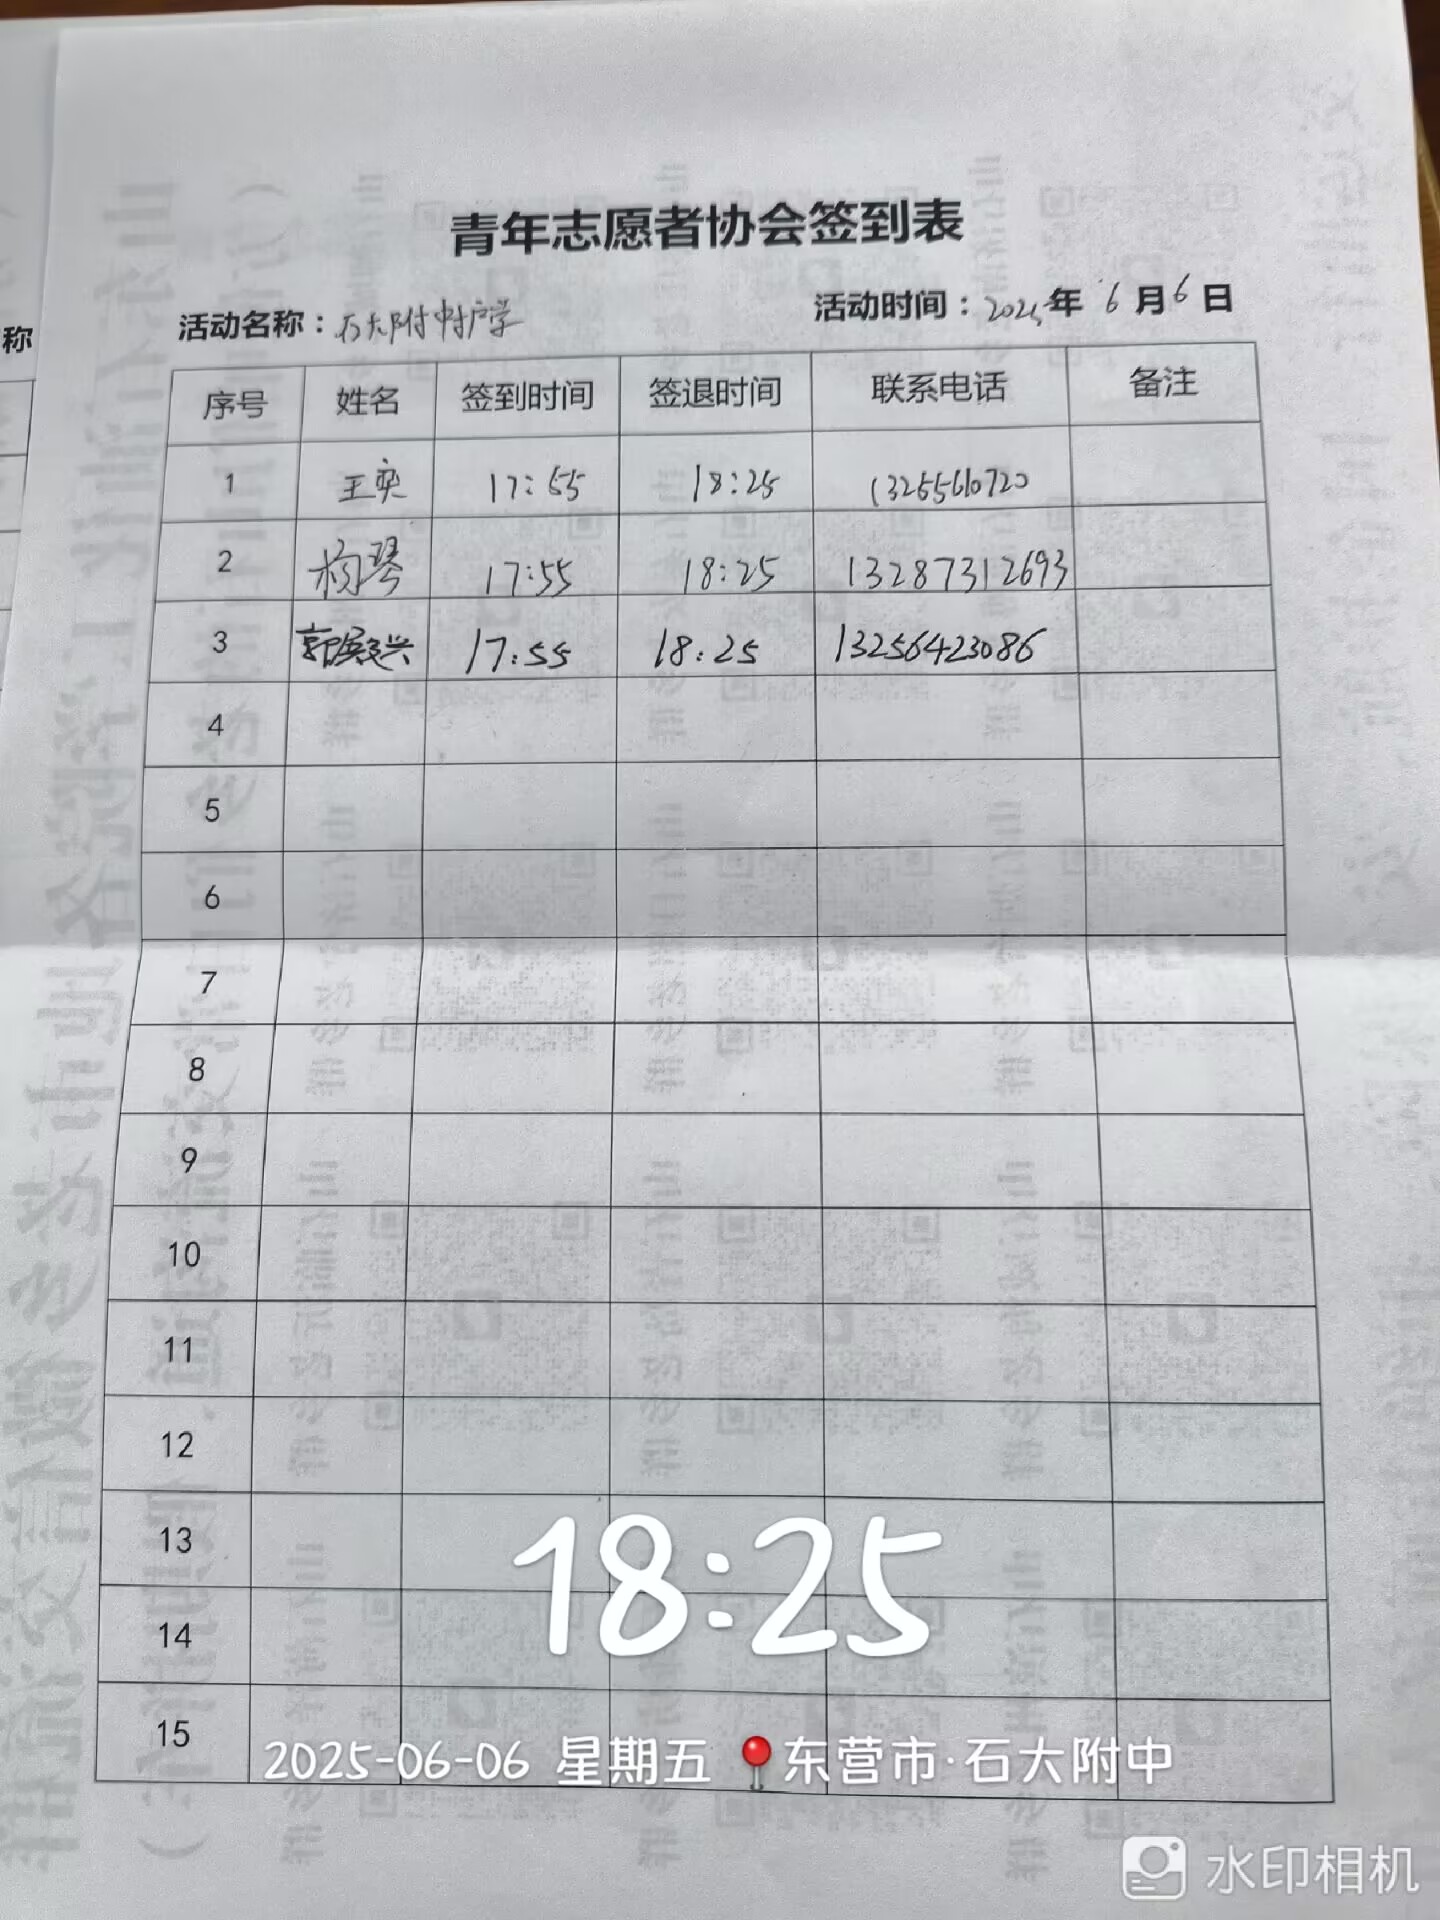 青年志愿者协会签到表
活动名称：石大附中护学 活动时间：2025年6月6日
称
序号 姓名 签到时间 签退时间 联系电话 备注
1 王奕 17:55 18:25 13255610720
2 杨琴 17:55 18:25 13287312693
3 17:55 18:25 13256423086
4
5
6
7
8
9
10
11
12
13
14
15
18:25
2025-06-06 星期五 东营市·石大附中
水印相机